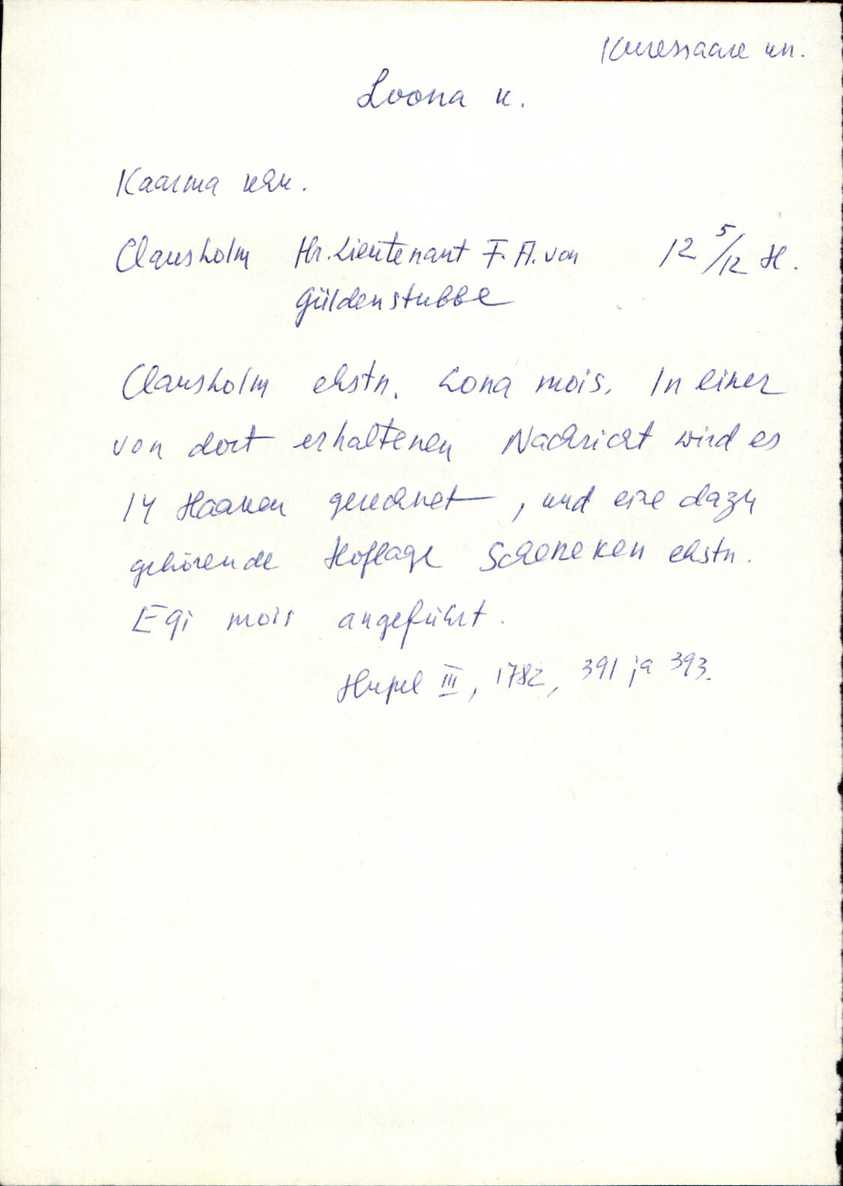 Kuressaare kn.
Loona k.
Kaarma khk.
Clausholm Hr. Lieutenant F. A. von 12 5/12 H.
Güldenstubbe
Clausholm ehstn. Lona mois. In einer
von dort erhaltenen Nachricht wird es
14 Haaken gerechnet, und eine dazu
gehörende Hoflage Scheneken ehstn.
Egi mois angeführt.
Hupel III, 1782, 391 ja 393.